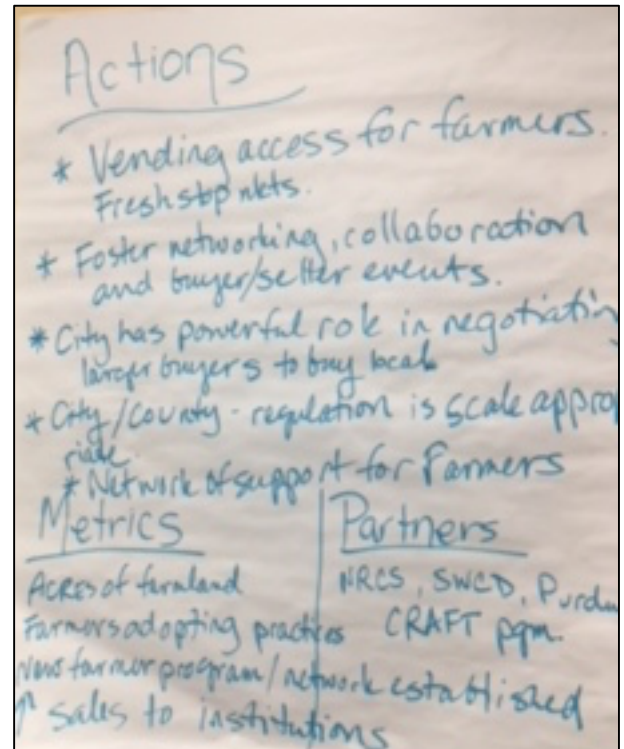 Actions
* Vending access for farmers.
Freshstop mkts.
* Foster networking, collaboration
and buyer/seller events.
* City has powerful role in negotiatin
larger buyers to buy local
* City/County - regulation is scale appro
riate.
* Network of support for Farmers
Metrics
Acres of farmland
Farmers adopting practices
New farmer program/network established
↑ sales to institutions
Partners
NRCS, SWCD, Purdu
CRAFT pgm.